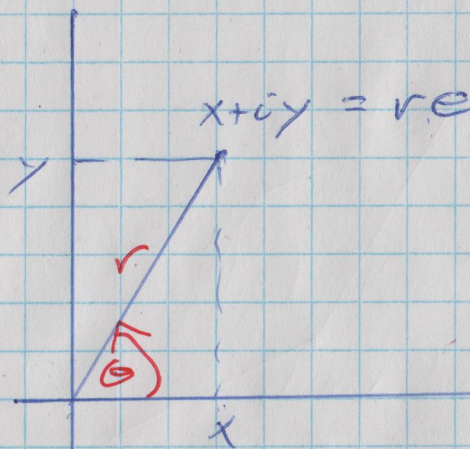 x+iy = re
y
r
θ
x